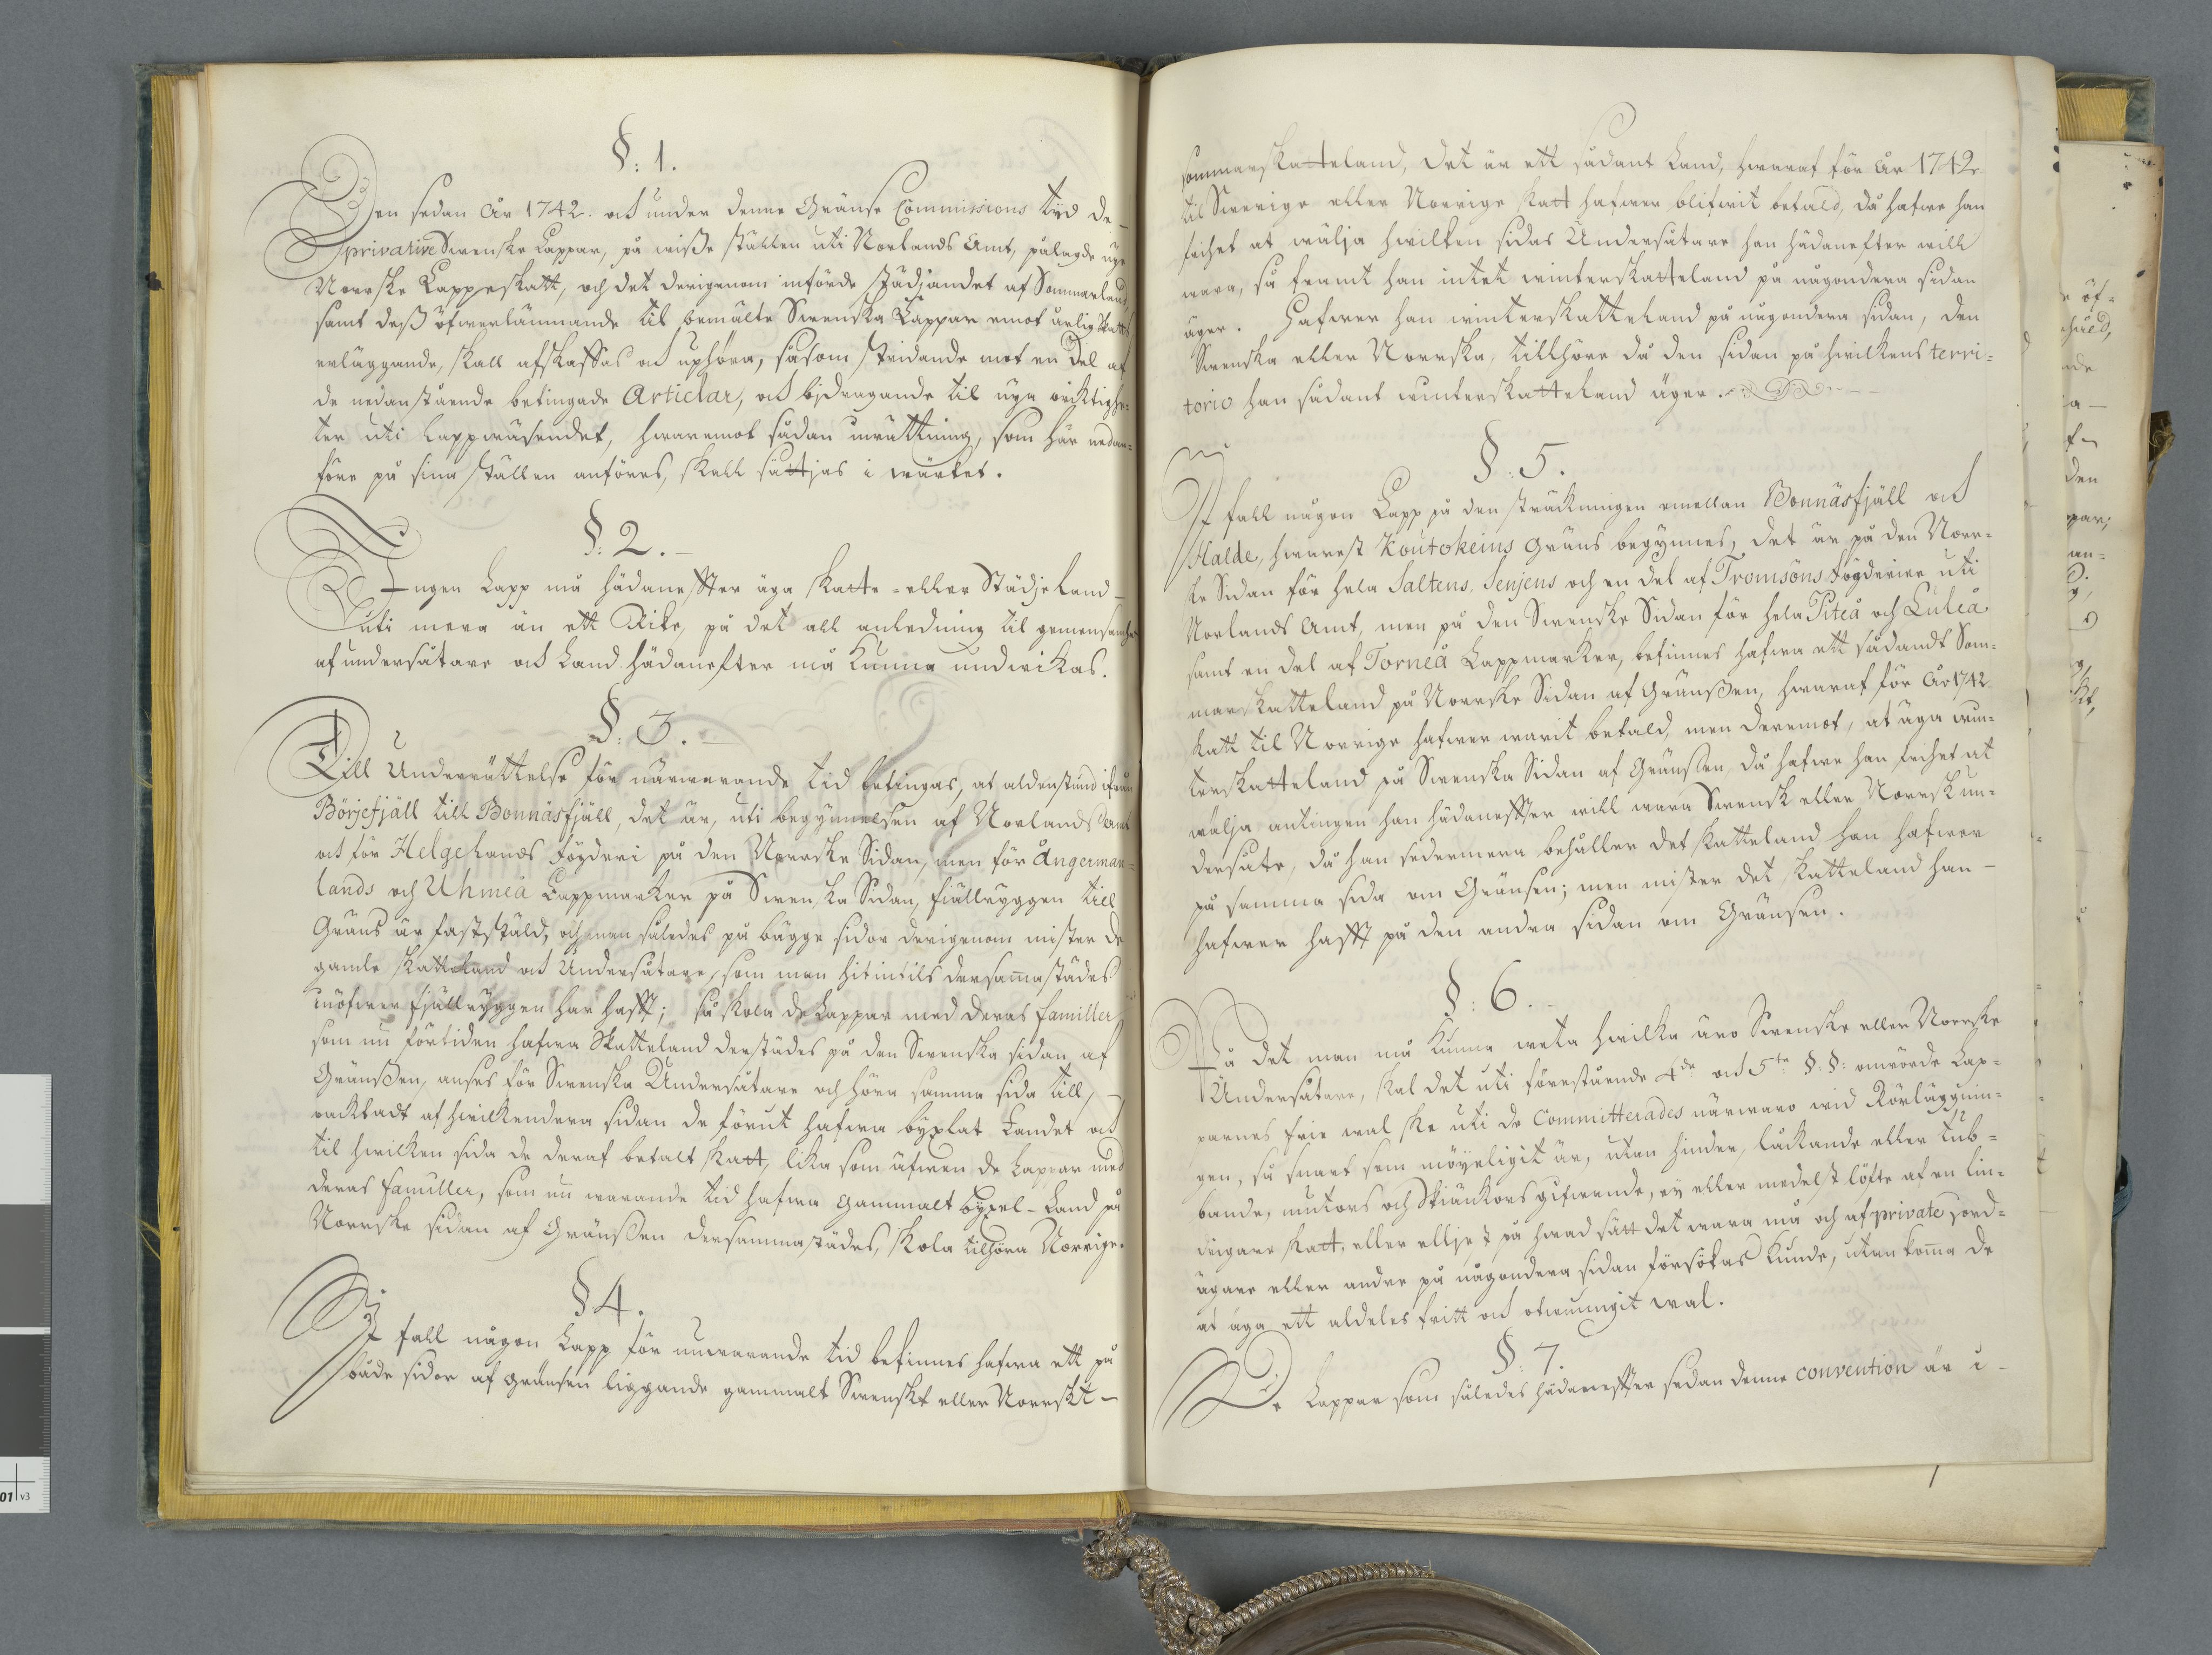 §: 1.
Den sedan År 1742. och under denne Gränse Commissions tid de-
privative Swenske Lappar, på wiße ställen uti Norlands Amt, pålagde nye
Norrske Lappeskatt, och det derigenom införde städjandet af Sommarland
samt deß öfwerlämnande til bemälte Swenska Lappar emot årlig Skatts
erläggande, skall afskaffas och uphöra, såsom stridande mot en del af
de nedanstående betingade Articlar, och bidragande til nya oriktighe-
ter uti Lappwäsendet, hwaremot sådan inrättning, som här nedan-
före på sina ställen anföres, skall sättjas i wärket.
§: 2.
Ingen Lapp må hädanefter äga Skatte- eller Städjeland
uti mera än ett Rike, på det all anledning til gemensamhet
af undersåtare och Land hädanefter må kunna undwikas.
§: 3.
Till Underrättelse för närwarande tid betingas, at aldenstund ifrån
Börjefjäll till Bonnäsfjäll, det är, uti begynnelsen af Norlands Amt
och för Helgelands Fögderi på den Norrske Sidan, men för Ångerman-
lands och Uhmeå Lappmarker på Swenska Sidan, fjällryggen till
Gräns är fastställd, och man således på bägge sidor derigenom mister de
gamle Skatteland och Undersåtare, som man hitintils dersammastädes
inöfwer fjällryggen har hafft; så skola de Lappar med deras familler
som nu förtiden hafwa Skatteland derstädes på den Swenska sidan af
Gränßen, anses för Swenska Undersåtare och höra samma sida till,
oacktadt af hwilkendera sidan de förut hafwa byxlat Landet och
til hwilken sida de deraf betalt skatt, lika som äfwen de Lappar med
deras familler, som nu warande tid hafwa gammalt byxel-Land på
Norrske sidan af Gränßen dersammastädes, skola tilhöra Norrige.
§ 4.
I fall någon Lapp för nuwarande tid befinnes hafwa ett på
både sidor af gränsen liggande gammalt Swenskt eller Norrskt
sommarskatteland, det är ett sådant Land, hwaraf för År 1742
til Swerige eller Norrige skatt hafwer blifwit betald, då hafwe han
frihet at wälja hwilken sidas Undersåtare han hädanefter will
wara, så framt han intet winterskatteland på någondera sidan
äger. Hafwer han winterskatteland på någondera sidan, den
Swenska eller Norrska, tillhöre då den sidan på hwilkens terri-
torio han sådant winterskatteland äger.
§: 5.
I fall någon Lapp på den sträckningen emellan Bonnäsfjäll och
Halde, hwarest Koutokeins Gräns begynnes, det är på den Norr-
ke Sidan för hela Saltens, Senjens och en del af Tromsöns Fögderier uti
Norlands Amt, men på den Swenske Sidan för hela Piteå och Luleå
samt en del af Torneå Lappmarker, befinnes hafwa ett sådandt Som-
marskatteland på Norrske Sidan af Gränßen, hwaraf för År 1742
skatt til Norrige hafwer warit betald, men deremot, at äga win-
terskatteland på Swenska Sidan af Gränßen, då hafwe han frihet at
wälja antingen han hädanefter will wara Swensk eller Norrsk un-
dersåte, då han sedermera behåller det skatteland han hafwer
på samma sida om Gränsen; men mister det skatteland han
hafwer hafft på den andra sidan om Gränsen.
§: 6.
På det man må kunna weta hwilka äro Swenske eller Norrske
Undersåtare, skal det uti förestående 4de och 5te §.§: omrörde Lap-
parnes frie wal ske uti de Committerades närwaro wid Rörläggnin-
gen, så snart som möyeligit är, utan hinder, låckande eller tub-
bande, mutors och skiänkors gifwande, ey eller medelst löfte af en lin-
drigare skatt, eller elljest på hwad sätt det wara må och af private jord-
ägare eller andre på någondera sidan försökas kunde, utan komma de
at äga ett aldeles fritt och otwungit wal.
§: 7.
De Lappar som således hädanefter sedan denne convention är i-